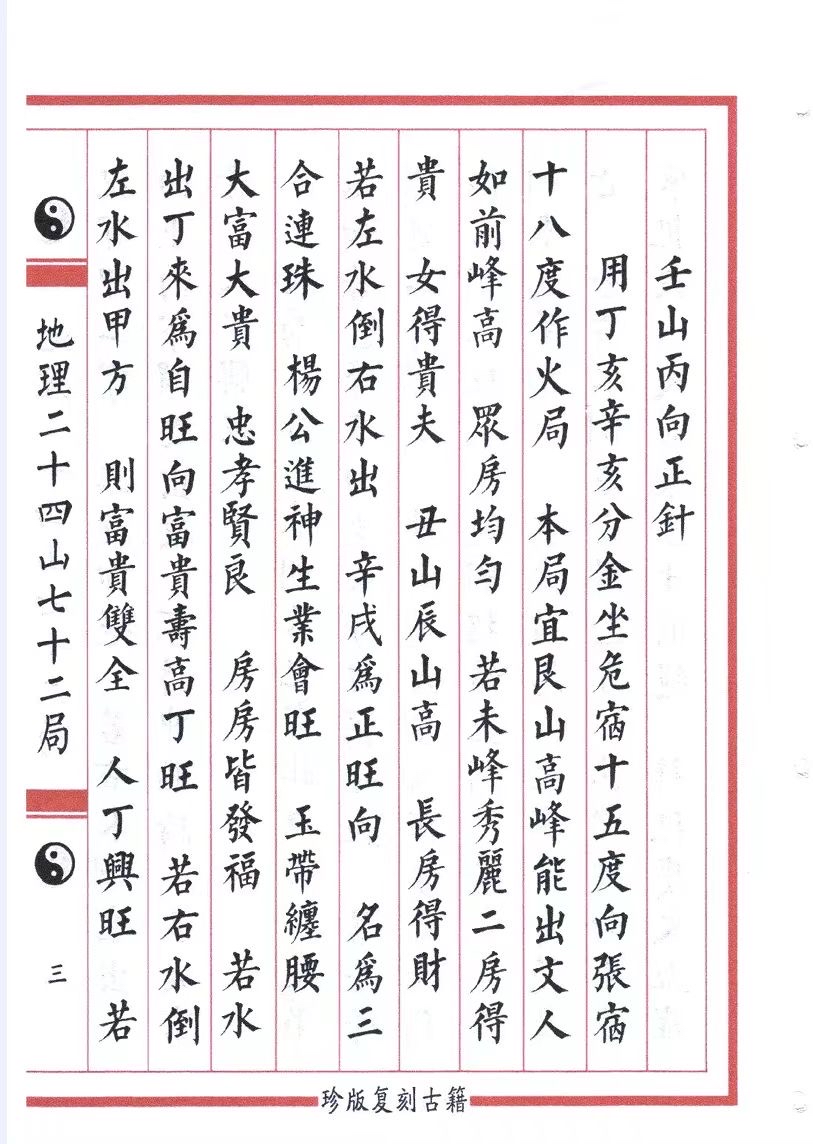 壬山丙向正針
用丁亥辛亥分金坐危宿十五度向張宿
十八度作火局 本局宜艮山高峰能出文人
如前峰高 眾房均勻 若未峰秀麗二房得
貴 女得貴夫 丑山辰山高 長房得財
若左水倒右水出 辛戌為正旺向 名為三
合連珠 楊公進神生業會旺 玉帶纏腰
大富大貴 忠孝賢良 房房皆發福 若水
出丁來為自旺向富貴壽高丁旺 若右水倒
左水出甲方 則富貴雙全 人丁興旺 若
地理二十四山七十二局
三
珍版复刻古籍